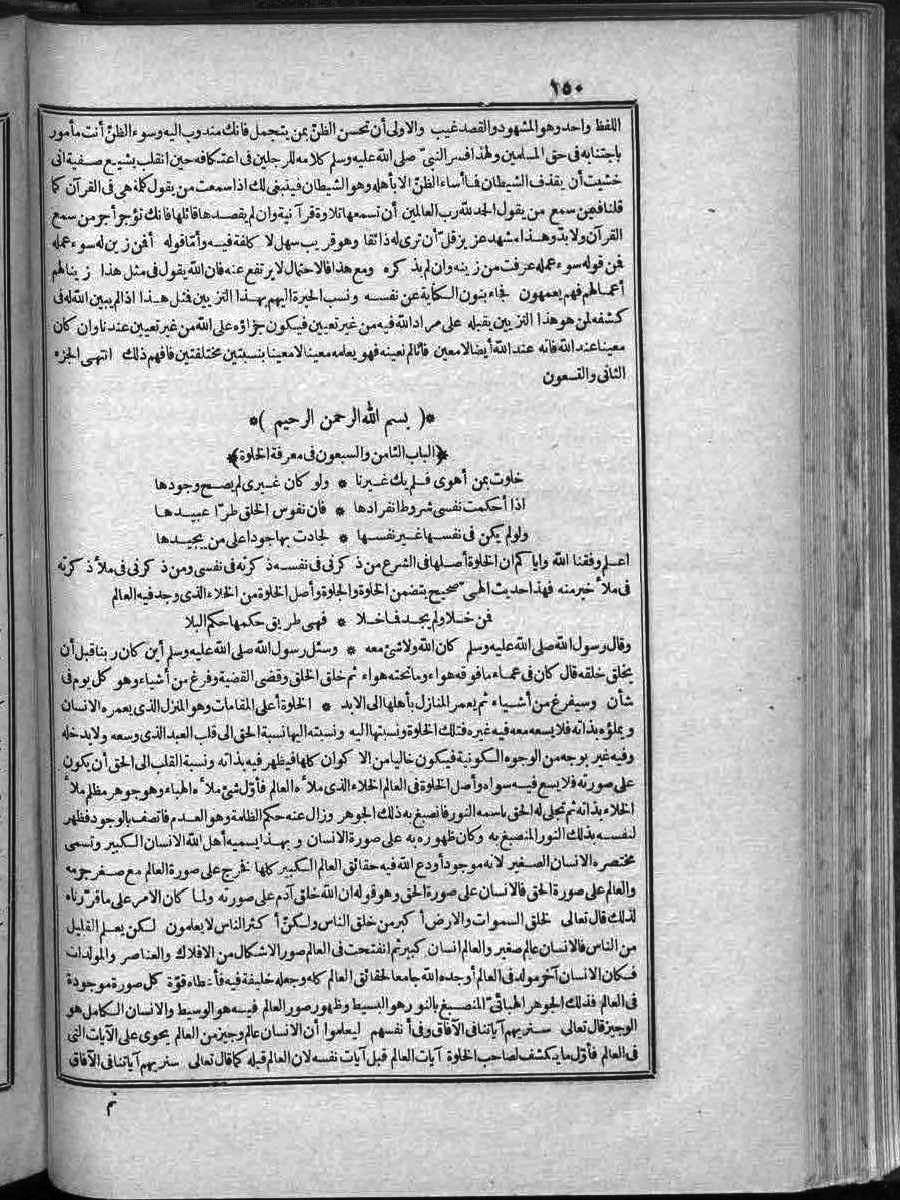 ١٥٠
اللفظ واحد وهو المشهود والقصد غيب والاولى أن تحسن الظن بمن يتجمل فانك مندوب اليه وسوء الظن أنت مأمور
باجتنابه فى حق المسلمين ولهذا فسر النبى صلى الله عليه وسلم كلامه للرجلين فى اعتكافه حين انقلب يشيع صفية انى
خشيت أن يقذف الشيطان فما أساء الظن الا بأهله وهو الشيطان فينبغى لك اذا سمعت من يقول كلمة هى فى القرآن كما
قلنا فيمن سمع من يقول الحمد لله رب العالمين أن تسمعها تلاوة قرآنية وان لم يقصدها قائلها فانك تؤجر أجر من سمع
القرآن ولابد وهذا مشهد عزيز قل أن ترى له ذائقا وهو قريب سهل لا كلفة فيه وأما قوله أفمن زين له سوء عمله
فمن قوله سوء عمله عرفت من زينه وان لم يذكره ومع هذا فالاحتمال لا يرتفع عنه فان الله يقول فى مثل هذا زينا لهم
أعمالهم فهم يعمهون فجاء بنون الكناية عن نفسه ونسب الحيرة اليهم بهذا التزيين فمثل هذا اذا لم يبين الله له فى
كشفه لمن هو هذا التزيين يقبله على مراد الله فيه من غير تعيين فيكون جزاؤه على الله من غير تعيين عندنا وان كان
معينا عند الله فانه عند الله أيضا لا معين فاننا لم نعينه فهو يعلمه معينا لا معينا بنسبتين مختلفتين فافهم ذلك انتهى الجزء
الثانى والتسعون
*( بسم الله الرحمن الرحيم )*
﴿الباب الثامن والسبعون فى معرفة الخلوة﴾
خلوت بمن أهوى فلم يك غيرنا * ولو كان غيرى لم يصح وجودها
اذا أحكمت نفسى شروط انفرادها * فان نفوس الخلق طرا عبيدها
ولو لم يكن فى نفسها غير نفسها * لجادت بها جودا على من يجيدها
اعلم وفقنا الله واياكم ان الخلوة أصلها فى الشرع من ذكرنى فى نفسه ذكرته فى نفسى ومن ذكرنى فى ملأ ذكرته
فى ملأ خير منه فهذا حديث الهى صحيح يتضمن الخلوة والجلوة وأصل الخلوة من الخلاء الذى وجد فيه العالم
فمن خلا ولم يجد فما خلا * فهى طريق حكمها حكم البلا
وقال رسول الله صلى الله عليه وسلم كان الله ولا شئ معه * وسئل رسول الله صلى الله عليه وسلم أين كان ربنا قبل أن
يخلق خلقه قال كان فى عماء ما فوقه هواء وما تحته هواء ثم خلق الخلق وقضى القضية وفرغ من أشياء وهو كل يوم فى
شأن وسيفرغ من أشياء ثم يعمر المنازل بأهلها الى الابد * الخلوة أعلى المقامات وهو المنزل الذى يعمره الانسان
ويملؤه بذاته فلا يسعه معه فيه غيره فتلك الخلوة ونسبتها اليه ونسبته اليها نسبة الحق الى قلب العبد الذى وسعه ولا يدخله
وفيه غير بوجه من الوجوه الكونية فيكون خاليا من الاكوان كلها فيظهر فيه بذاته ونسبة القلب الى الحق أن يكون
على صورته فلا يسع فيه سواه وأصل الخلوة فى العالم الخلاء الذى ملأه العالم فأول شئ ملأه الهباء وهو جوهر مظلم ملأ
الخلاء بذاته ثم تجلى له الحق باسمه النور فانصبغ به ذلك الجوهر وزال عنه حكم الظلمة وهو العدم فاتصف بالوجود فظهر
لنفسه بذلك النور المنصبغ به وكان ظهوره به على صورة الانسان وبهذا يسميه أهل الله الانسان الكبير وتسمى
مختصره الانسان الصغير لانه موجود أودع الله فيه حقائق العالم الكبير كلها فخرج على صورة العالم مع صغر جرمه
والعالم على صورة الحق فالانسان على صورة الحق وهو قوله ان الله خلق آدم على صورته ولما كان الامر على ما قررناه
لذلك قال تعالى لخلق السموات والارض أكبر من خلق الناس ولكن أكثر الناس لا يعلمون لكن يعلم القليل
من الناس فالانسان عالم صغير والعالم انسان كبير ثم انفتحت فى العالم صور الاشكال من الافلاك والعناصر والمولدات
فكان الانسان آخر مولد فى العالم أوجده الله جامعا لحقائق العالم كله وجعله خليفة فيه فأعطاه قوة كل صورة موجودة
فى العالم فذلك الجوهر الهبائى المنصبغ بالنور هو البسيط وظهور صور العالم فيه هو الوسيط والانسان الكامل هو
الوجيز قال تعالى سنريهم آياتنا فى الآفاق وفى أنفسهم ليعلموا أن الانسان عالم وجيز من العالم يحوى على الآيات التى
فى العالم فأول ما يكشف لصاحب الخلوة آيات العالم قبل آيات نفسه لان العالم قبله كما قال تعالى سنريهم آياتنا فى الآفاق
ثم